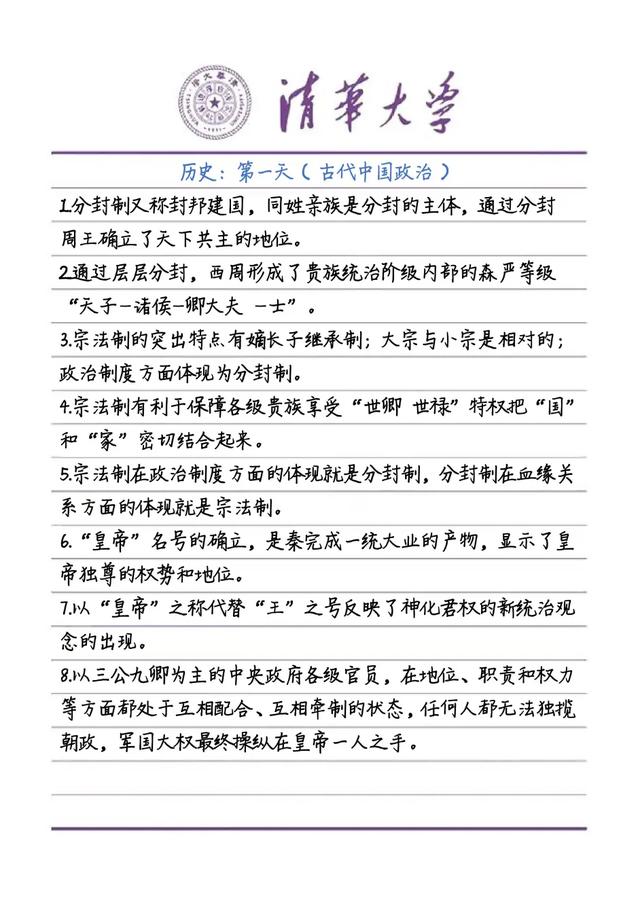 清华大学
历史：第一天（古代中国政治）
1.分封制又称封邦建国，同姓亲族是分封的主体，通过分封
周王确立了天下共主的地位。
2.通过层层分封，西周形成了贵族统治阶级内部的森严等级
“天子-诸侯-卿大夫 -士”。
3.宗法制的突出特点有嫡长子继承制；大宗与小宗是相对的；
政治制度方面体现为分封制。
4.宗法制有利于保障各级贵族享受“世卿 世禄”特权把“国”
和“家”密切结合起来。
5.宗法制在政治制度方面的体现就是分封制，分封制在血缘关
系方面的体现就是宗法制。
6.“皇帝”名号的确立，是秦完成一统大业的产物，显示了皇
帝独尊的权势和地位。
7.以“皇帝”之称代替“王”之号反映了神化君权的新统治观
念的出现。
8.以三公九卿为主的中央政府各级官员，在地位、职责和权力
等方面都处于互相配合、互相牵制的状态，任何人都无法独揽
朝政，军国大权最终操纵在皇帝一人之手。